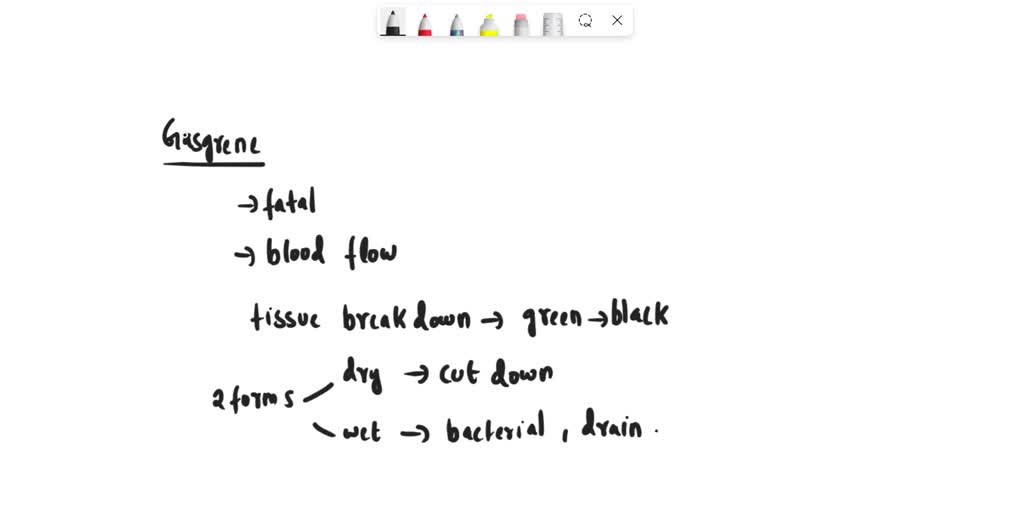 Gasgrene
→ fatal
→ blood flow
tissue breakdown → green → black
2 forms
dry → cut down
wet → bacterial, drain.